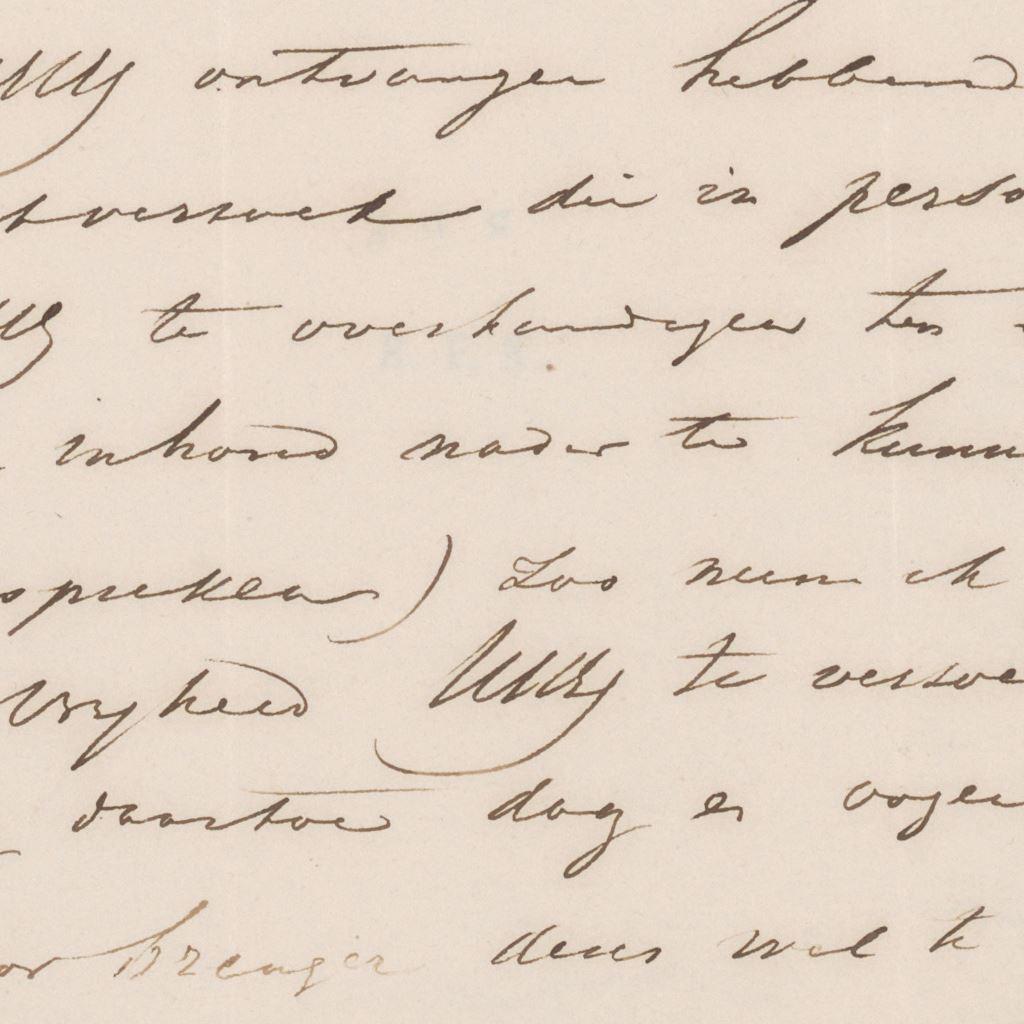 UWEg ontvangen hebbend
tverzoek die in perso
te overhandigen ten
inhoud nader te kunn
spreken) Zoo neem ik
vryheid UWEg te verzoe
daartoe dag en ooge
or brenger dezes wel te